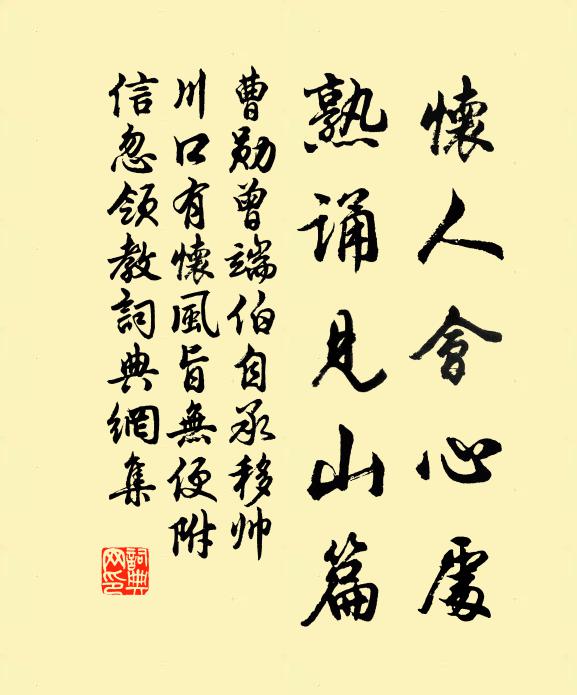 懷人會心處
熟誦見山篇
曹勛曾端伯自承移帅
川口有懷風旨無便附
信忽領教詞典網集
詞典
网印